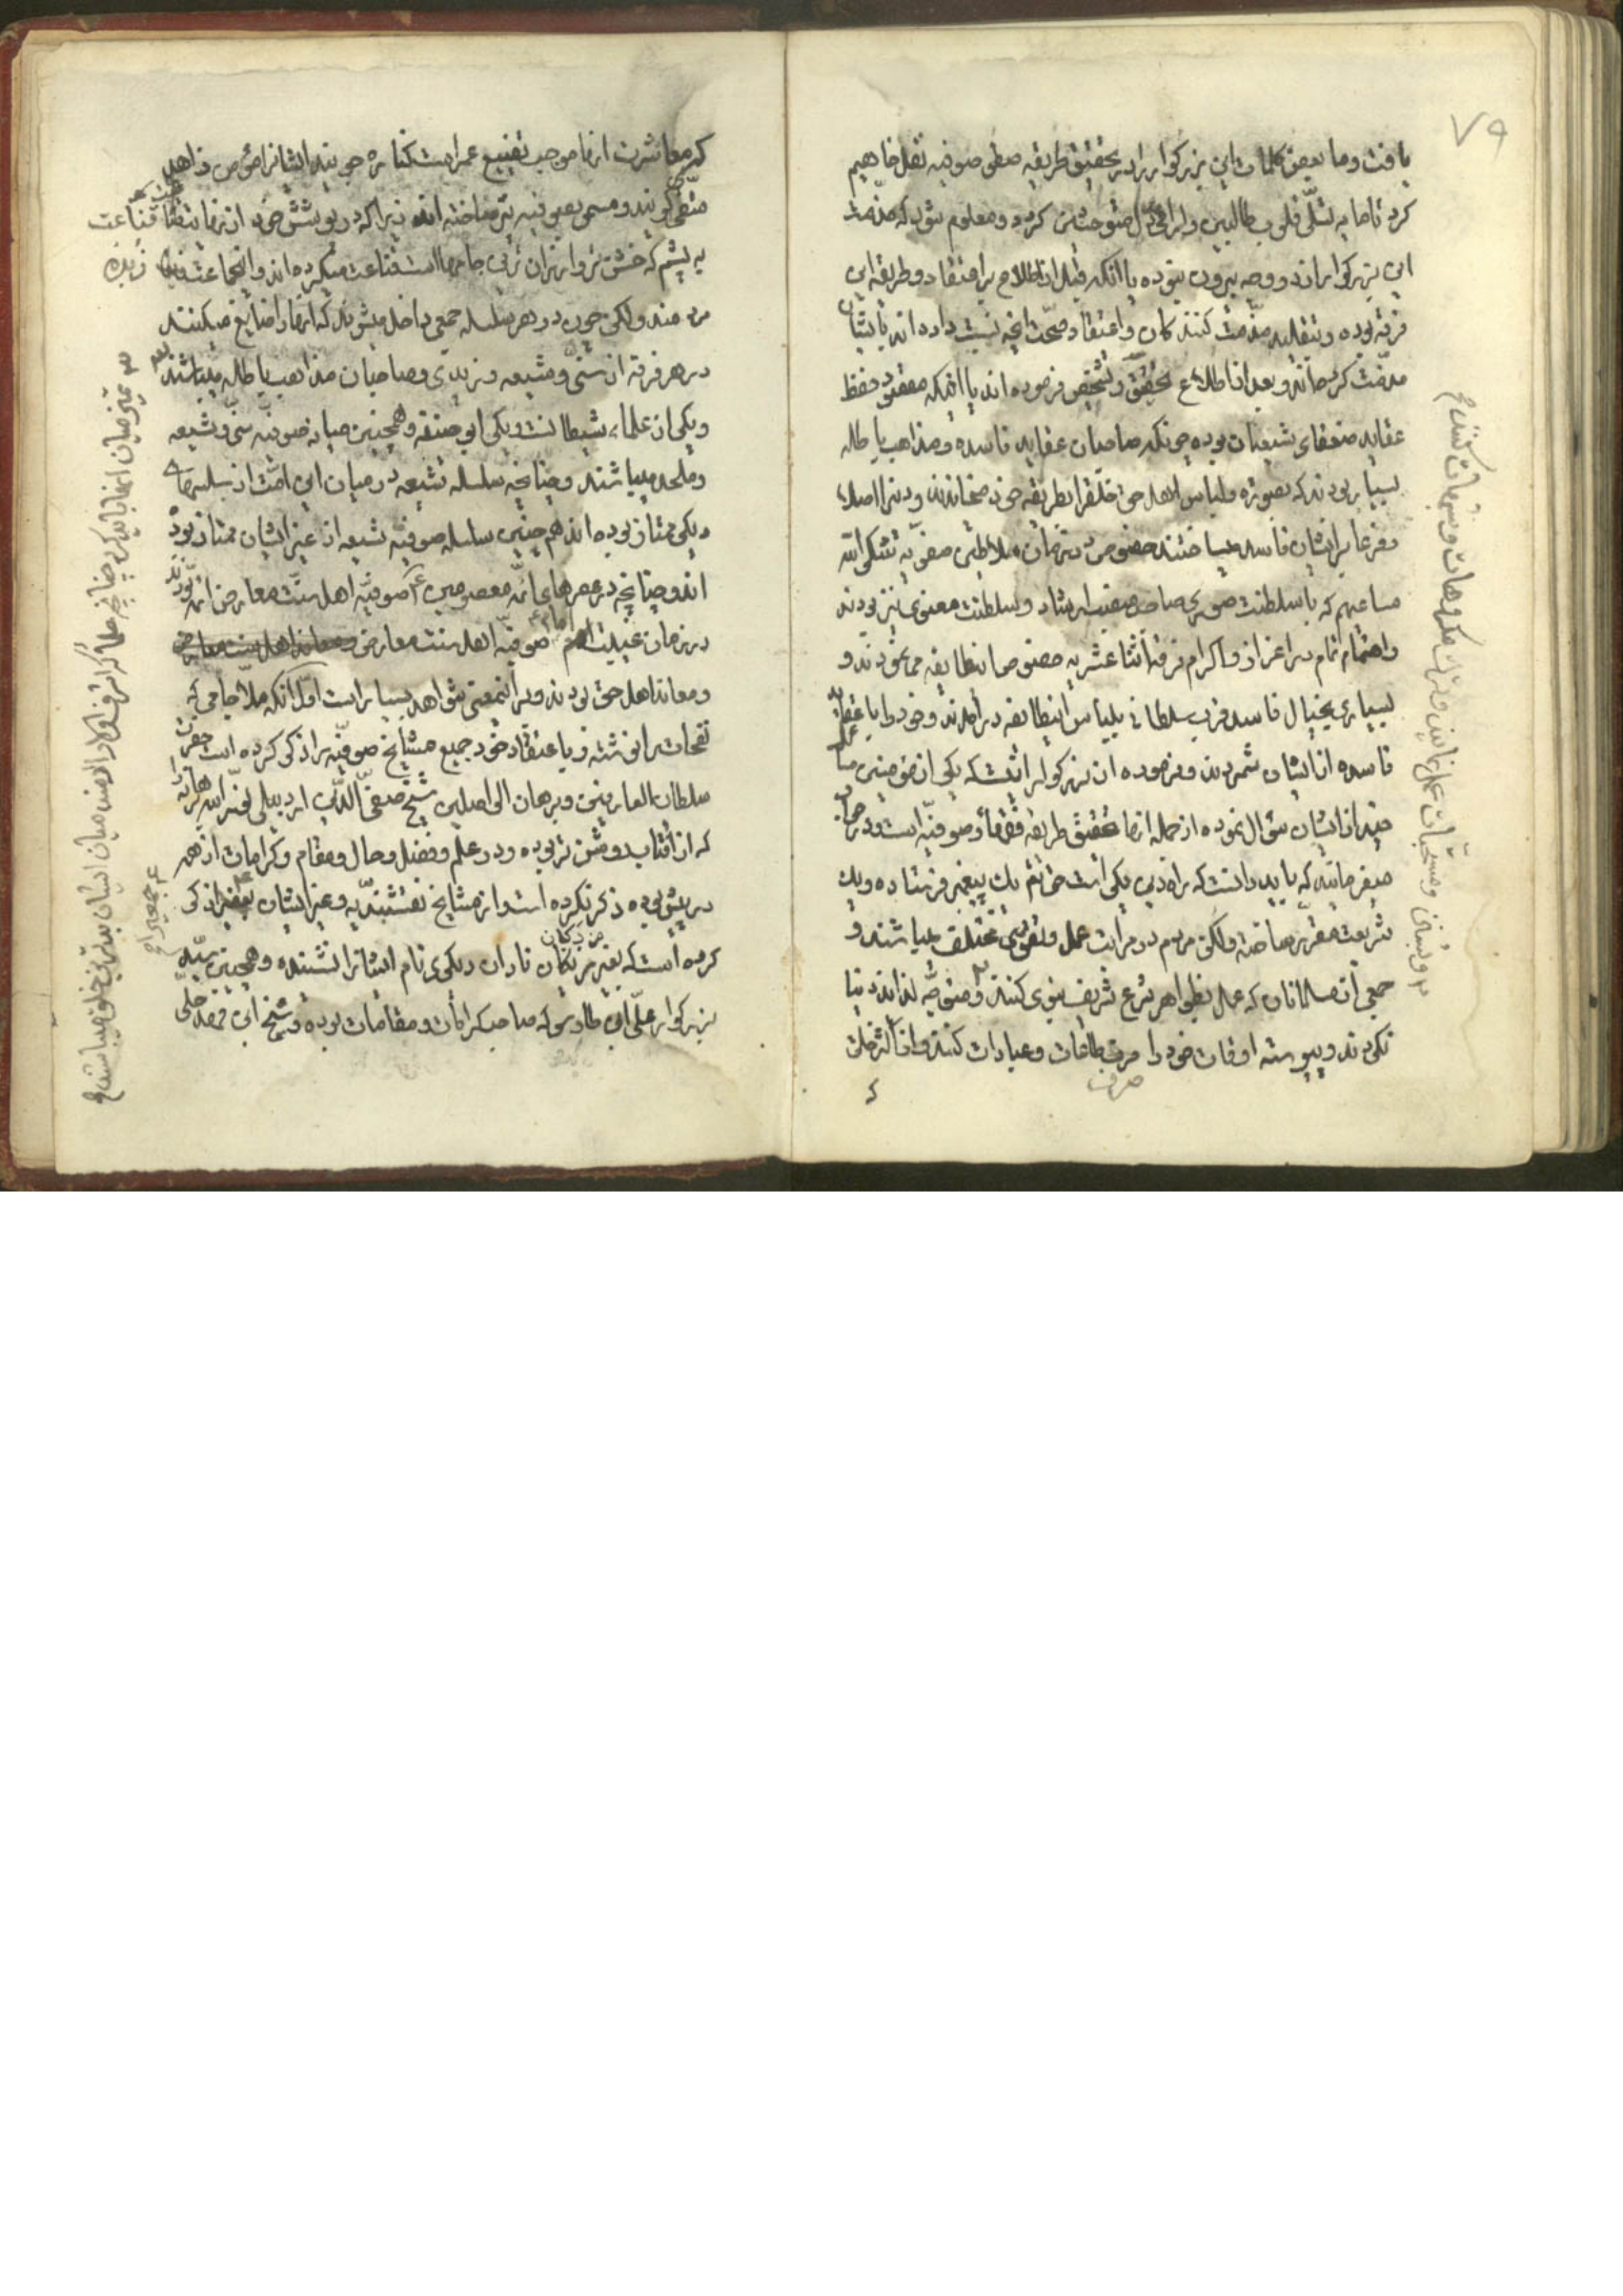 ۷۹
یافت و ما بعضی کلمات این بزرکوار را در تحقیق طریقه صوفیه نقل خواهیم
کرد تا مایه تسلّی قلوب طالبین و کردد و معلوم شود که مذمّت
این بزرکواران از دو وجه بیرون نبوده یا آنکه قبل از اطلاع بر اعتقاد و طریقه این
فرقه بوده و بتقلید مذمّت کنند کان و اعتقاد صحّت آنچه نسبت داده اند بایشان
مذمّت کرده اند و بعد از اطلاع تحقیق و تشخیص فرموده اند یا آنکه مقصود حفظ
عقاید ضعفای شیعیان بوده چونکه صاحبان عقاید فاسده و مذاهب باطله
بسیار بودند که بصورة و لباس اهل حق خلق را بطریقه خود میخاندند و دین را اصلا
و فرعا بر ایشان فاسد میساختند خصوص در زمان سلاطین صفویه شکر الله
مساعیهم که با سلطنت صوری صاحب منصب ارشاد و سلطنت معنوی نیز بودند
و اهتمام تمام در اعزاز و اکرام فرقه اثنا عشریه خصوصا اینطایفه می نمودند و
بسیاری بخیال فاسد قرب سلطانی بلباس اینطائفه در آمدند و خود را با عقاید
فاسده از ایشان شمردند و فرموده ان بزرکوار انست که یکی از مؤمنین مسائل
چند از ایشان سئوال نموده از جمله انها تحقیق طریقه فقها و صوفیّه است و در جواب
میفرمایند که باید دانست که راه دین یکی است حق تعالی یک پیغمبر فرستاده و یک
شریعت مقرّر ساخته ولکن مردم در مراتب عمل و تقوی مختلف میباشند و
جمعی از مسلمانان که عمل بظواهر شرع شریف نبوی کنند و متوجّه لذائذ دنیا
نکردند و پیوسته اوقات خود را صرف طاعات و عبادات کنند و از اکثر خلق
صرف
۲ و بسنن و مستحبّات عمل نمایند و ترک مکروهات و شبهات کنند
که معاشرت انها موجب تضییع عمر است کناره جویند ایشانرا مؤمن زاهد
متقی کویند و مسمی بصوفیه نیز ساخته اند زیرا که در پوشش خود از نهایت قناعت
به پشم که خشن تر و ارزان ترین جامها است قناعت میکرده اند و این جماعت زبده
مردمند ولکن چون در هر سلسله جمعی داخل میشوند که انها را ضایع میکنند
در هر فرقه از سنّی و شیعه و زیدی و صاحبان مذاهب باطله میباشند
و یکی از علماء شیطانست و یکی ابو حنیفه و همچنین میانه صوفیّه سنّی و شیعه
و ملحد میباشند و چنانچه سلسله شیعه در میان این امّت از سلسلهای
دیکر ممتاز بوده اند همچنین سلسله صوفیّه شیعه از غیر ایشان ممتاز بوده
اند و چنانچه در عصرهای ائمّه معصومین ع صوفیّه اهل سنّت معارض ائمه بودند
در زمان غیبت امام صوفیّه اهل سنت معارض
و معاند اهل حق بودند و بر اینمعنی شواهد بسیار است اوّل آنکه ملّا جامی که
نفحات را نوشته و باعتقاد خود جمیع مشایخ صوفیّه را ذکر کرده است حضرت
سلطان العارفین و برهان الواصلین شیخ صفی الدّین اردبیلی نوّر الله برهانه را
که از آفتاب روشن تر بوده و در علم و فضل و حال و مقام و کرامات از همه
در پیش بوده ذکر نکرده است و از مشایخ نقشبندیّه و غیر ایشان نفر را ذکر
کرده است که بغیر نادان دیکری نام ایشانرا نشنیده و همچنین سیّد
بزرکوار علی ابن طاوس که صاحب کرامات و مقامات بوده و شیخ ابن فهد حلّی
۳ تمیز میان انها باید کرد چنانچه علما که اشرف اهل ارضند میان ایشان بدترین خلق میباشند